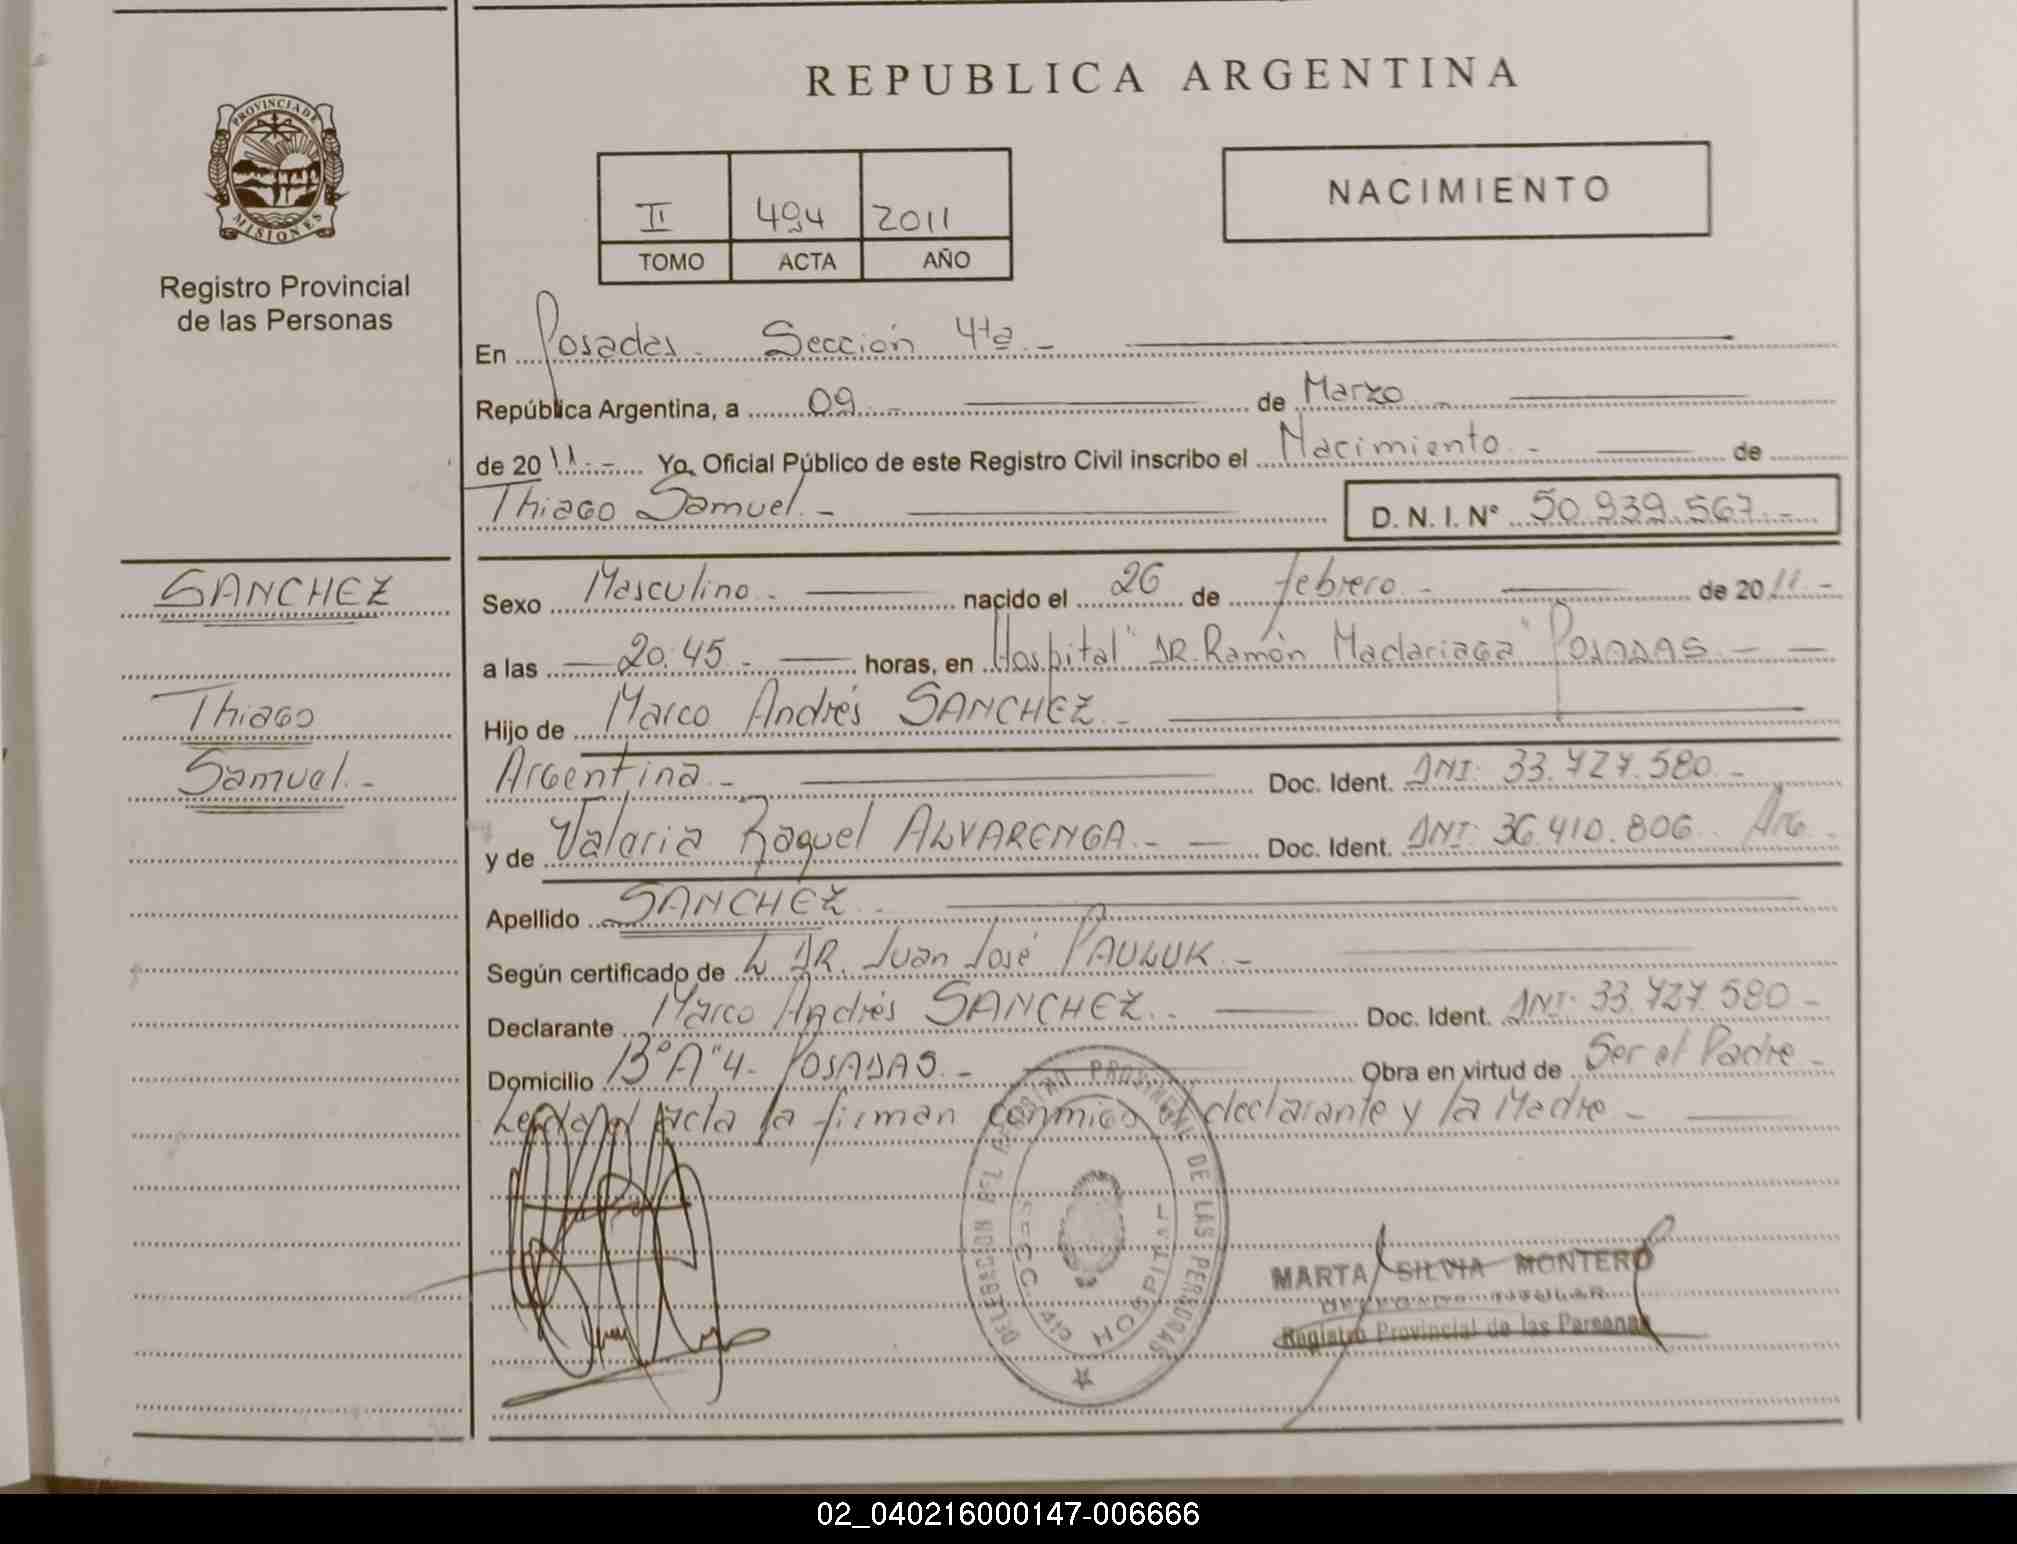 REPUBLICA ARGENTINA
PROVINCIA DE
MISIONES
Registro Provincial
de las Personas
II 494 2011
TOMO ACTA AÑO
NACIMIENTO
En Posadas Sección 4ta.-
República Argentina, a 09.- de Marzo.-
de 2011.- Yo, Oficial Público de este Registro Civil inscribo el Nacimiento.- de
Thiago Samuel.- D. N. I. N° 50.939.567.-
SANCHEZ
Thiago
Samuel.-
Sexo Masculino.- nacido el 26 de febrero.- de 2011.-
a las 20:45.- horas, en Hospital "DR. Ramón Madariaga" POSADAS.-
Hijo de Marco Andrés SANCHEZ.-
Argentina.- Doc. Ident. DNI: 33.727.580.-
y de Valeria Raquel ALVARENGA.- Doc. Ident. DNI: 36.410.806. Arg.
Apellido SANCHEZ.-
Según certificado de DR. Juan José PAULUK.-
Declarante Marco Andrés SANCHEZ.- Doc. Ident. DNI: 33.727.580.-
Domicilio B° A"4- POSADAS.- Obra en virtud de Ser el Padre.-
acta la firman conmigo el declarante y la Madre.-
DELEGACION DEL REGISTRO PROVINCIAL DE LAS PERSONAS
SECC. 4ta HOSPITAL
MARTA SILVIA MONTERO
Registro Provincial de las Personas
02_040216000147-006666